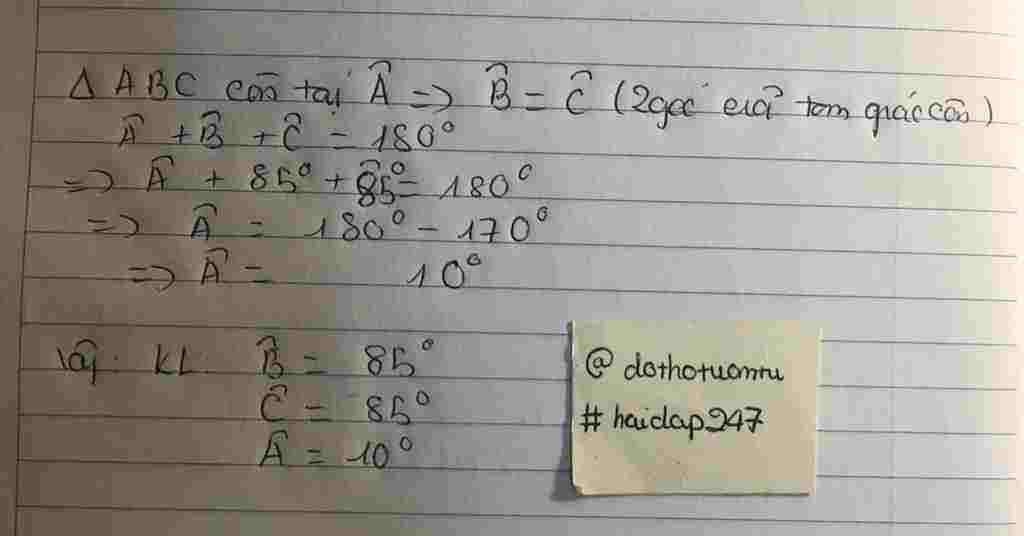 Δ ABC cân tại Â => B̂ = Ĉ (2 góc củả tam giác cân)
Â + B̂ + Ĉ = 180°
=> Â + 85° + 85° = 180°
=> Â = 180° - 170°
=> Â = 10°
Vậy. KL B̂ = 85°
Ĉ = 85°
Â = 10°
@ dothotuamtu
# haidap247